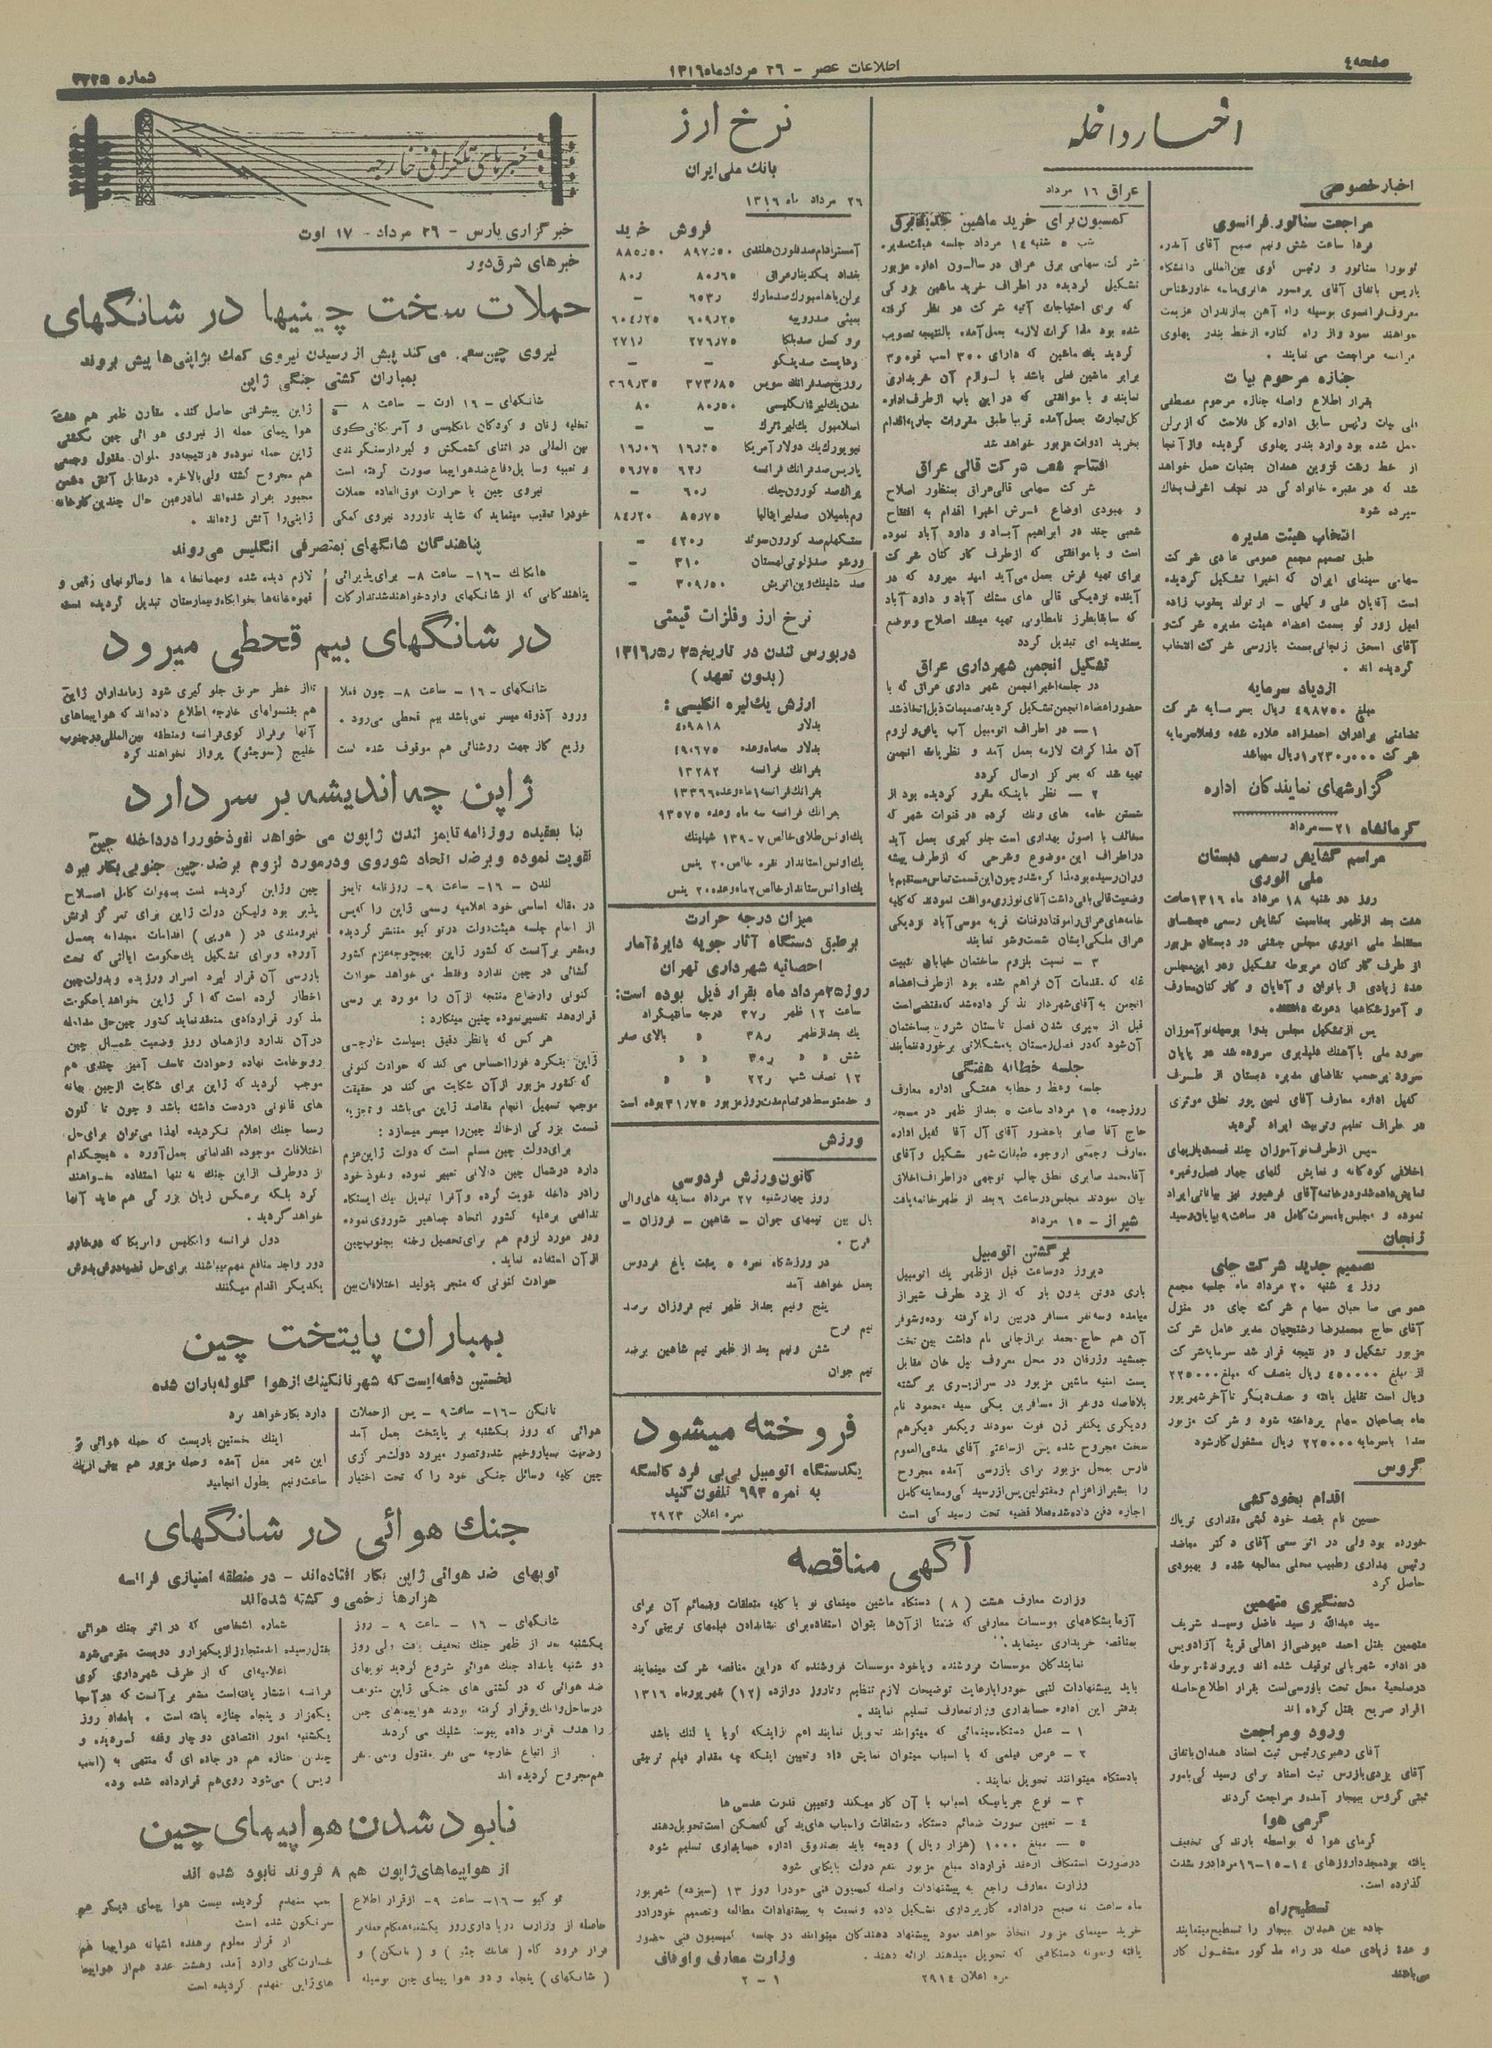 صفحه ٤
اطلاعات عصر - ٢٦ مردادماه ١٣١٦
شماره
اخبار داخله
اخبار خصوصی
مراجعت سناتور فرانسوی
فردا ساعت شش ونیم صبح آقای آندره
پاریس باتفاق آقای پرفسور
معروف فرانسوی بوسیله راه آهن بمازندران عزیمت
خواهند نمود واز راه کناره از خط بندر پهلوی
بفرانسه مراجعت می نمایند .
جنازه مرحوم بیات
بقرار اطلاع واصله جنازه مرحوم مصطفی
قلی بیات رئیس سابق اداره کل فلاحت که از برلن
حمل شده بود وارد بندر پهلوی گردیده واز آنجا
از خط رشت قزوین همدان بعتبات حمل خواهد
شد که در مقبره خانوادگی در نجف اشرف بخاک
سپرده شود
انتخاب هیئت مدیره
طبق تصمیم مجمع عمومی عادی شرکت
سهامی سینمای ایران که اخیرا تشکیل گردیده
است آقایان علی وکیلی - ارتولد یعقوب زاده
امیل زورلو بسمت اعضاء هیئت مدیره شرکت و
آقای اسحق زنجانی بسمت بازرسی شرکت انتخاب
گردیده اند .
ازدیاد سرمایه
مبلغ ٤٩٨٧٥٠ ریال بسرمایه شرکت
تضامنی برادران احمدزاده علاوه شده وفعلا سرمایه
شرکت ١٫٢٣٠٫٠٠٠ ریال میباشد
گزارشهای نمایندگان اداره
کرمانشاه ٢١ - مرداد
مراسم گشایش رسمی دبستان
ملی انوری
روز دو شنبه ١٨ مرداد ماه ١٣١٦ ساعت
هفت بعد ازظهر بمناسبت گشایش رسمی دبستان
مختلط ملی انوری مجلس جشنی در دبستان مزبور
از طرف کارکنان مربوطه تشکیل ودر این مجلس
عده زیادی از بانوان و آقایان و کارکنان معارف
و آموزشگاهها دعوت داشتند.
پس ازتشکیل مجلس بدوا بوسیله نوآموزان
سرود ملی باآهنگ دلپذیری سروده شد در پایان
سرود برحسب تقاضای مدیره دبستان از طرف
کفیل اداره معارف آقای امین پور نطق موثری
در اطراف تعلیم وتربیت ایراد گردید
سپس ازطرف نوآموزان چند قسمت بازیهای
اخلاقی کودکانه و نمایش گلهای چهار فصل وغیره
نمایش داده شد ودر خاتمه آقای فرهپور نیز بیاناتی ایراد
نموده و مجلس بامسرت کامل در ساعت ٩ بپایان رسید
زنجان
تصمیم جدید شرکت چای
روز ٤ شنبه ٢٠ مرداد ماه جلسه مجمع
عمومی صاحبان سهام شرکت چای در منزل
آقای حاج محمدرضا رشتچیان مدیر عامل شرکت
مزبور تشکیل و در نتیجه قرار شد سرمایه شرکت
از مبلغ ٤٥٠٠٠٠ ریال بنصف که مبلغ ٢٢٥٠٠٠
ریال است تقلیل یافته و نصف دیگر تا آخر شهریور
ماه بصاحبان سهام پرداخته شود و شرکت مزبور
بعدا باسرمایه ٢٢٥٠٠٠ ریال مشغول کار شود
گروس
اقدام بخودکشی
حسین نام بقصد خود کشی مقداری تریاک
خورده بود ولی در اثر سعی آقای دکتر معاضد
رئیس بهداری وطبیب محلی معالجه شده و بهبودی
حاصل کرد
دستگیری متهمین
سید عبدالله و سید فاضل وسید شریف
متهمین بقتل احمد عیوضی از اهالی قریهٔ آزادویس
در اداره شهربانی توقیف شده اند و پروندهٔ مربوطه
درصلحیهٔ محل تحت بازرسی است بقرار اطلاع حاصله
اقرار صریح بقتل کرده اند
ورود ومراجعت
آقای رهبری رئیس ثبت اسناد همدان باتفاق
آقای یزدی بازرس ثبت اسناد برای رسیدگی بامور
ثبتی گروس ببیجار آمده و مراجعت کردند
گرمی هوا
گرمای هوا که بواسطه بارندگی تخفیف
یافته بود مجدد از روزهای ١٤-١٥-١٦ مرداد رو بشدت
گذارده است.
تسطیح راه
جاده بین همدان ببیجار را تسطیح مینمایند
و عدهٔ زیادی عمله در راه مذکور مشغول کار
می باشند
عراق ١٦ مرداد
کمسیون برای خرید ماشین جدید برق
شب ٥ شنبه ١٤ مرداد جلسه هیئت مدیره
شرکت سهامی برق عراق در سالون اداره مزبور
تشکیل گردیده در اطراف خرید ماشین بزرگی
که برای احتیاجات آتیه شرکت در نظر گرفته
شده بود مذاکرات لازمه بعمل آمده بالنتیجه تصویب
گردید یک ماشین که دارای ٣٠٠ اسب قوه و ٣
برابر ماشین فعلی باشد با لوازم آن خریداری
نمایند و با موافقتی که در این باب ازطرف اداره
کل تجارت بعمل آمده قریبا طبق مقررات جاریه اقدام
بخرید ادوات مزبور خواهد شد
افتتاح شعب شرکت قالی عراق
شرکت سهامی قالی عراق بمنظور اصلاح
و بهبودی اوضاع فرش اخیرا اقدام به افتتاح
شعبی چند در ابراهیم آباد و داود آباد نموده
است و با موافقتی که ازطرف کارکنان شرکت
برای تهیه فرش بعمل می آید امید میرود که در
آینده نزدیکی قالی های سنگ آباد و داود آباد
که سابقا بطرز نامطلوبی تهیه میشد اصلاح و بوضع
پسندیده ای تبدیل گردد
تشکیل انجمن شهرداری عراق
در جلسه اخیر انجمن شهر داری عراق که با
حضور اعضاء انجمن تشکیل گردید تصمیمات ذیل اتخاذ شد
١ - در اطراف اتومبیل آب پاش و لزوم
آن مذاکرات لازمه بعمل آمد و نظریات انجمن
تهیه شد که بمرکز ارسال گردد
٢ - نظر باینکه مقرر گردیده بود از
شستن خامه های رنگ کرده در قنوات شهر که
مخالف با اصول بهداری است جلو گیری بعمل آید
قبل از سپری شدن فصل تابستان شروع بساختمان
آن شود که در فصل زمستان به مشکلاتی برخورد ننمایند
جلسه خطابه هفتگی
جلسه وعظ و خطابه هفتگی اداره معارف
روز جمعه ١٥ مرداد ساعت ٥ بعد از ظهر در مسجد
حاج آقا صابر باحضور آقای آل آقا کفیل اداره
معارف وجمعی ازوجوه طبقات شهر تشکیل و آقای
آقا محمد صابری نطق جالب توجهی در اطراف اخلاق
بیان نمودند مجلس در ساعت ٦ بعد از ظهر خاتمه یافت
شیراز - ١٥ مرداد
برگشتن اتومبیل
دیروز دو ساعت قبل ازظهر یک اتومبیل
باری دوتن بدون بار که از یزد بطرف شیراز
میامده وسه نفر مسافر دربین راه گرفته بوده وشوفر
آن هم حاج محمد برازجانی نام داشت بین تخت
جمشید وزرقان در محل معروف بپل خان مقابل
پست امنیه ماشین مزبور در سرازیری برگشته
بلافاصله دو نفر از مسافرین یکی سید محمود نام
ودیگری یکنفر زن فوت نمودند ویکنفر دیگر هم
سخت مجروح شده پس ازساعتی آقای مدعی العموم
فارس بمحل مزبور برای بازرسی آمده مجروح
را بشیراز اعزام و مقتولین پس از رسیدگی و معاینه کامل
اجازه دفن داده شده فعلا قضیه تحت رسیدگی است
نرخ ارز
بانک ملی ایران
٢٦ مرداد ماه ١٣١٦
فروش خرید
آمستردام صد فلورن هلندی ٨٩٧٫٥٠ ٨٨٥٫٥٠
بغداد یکدینار عراقی ٨٠٫٦٥ ٨٠٫
برلن یا هامبورک صد مارک ٦٥٣٫ -
بمبئی صد روپیه ٦٠٩٫٢٥ ٦٠٤٫٢٥
بروکسل صد بلکا ٢٧٦٫٧٥ ٢٧١٫
زوریخ صد فرانک سویس ٣٧٣٫٨٥ ٣٦٩٫٣٥
لندن یک لیره انگلیسی ٨٠٫٥٠ ٨٠
اسلامبول یک لیره ترک - -
نیویورک یک دولار آمریکا ١٦٫٢٥ ١٦٫٠٦
پاریس صد فرانک فرانسه ٦٢٫ ٥٦٫٧٥
پراک صد کورون چک ٦٠٫ -
رم یا میلان صد لیر ایتالیا ٨٥٫٧٥ ٨٤٫٢٠
ستکهلم صد کورون سوئد ٤٢٠٫ -
ورشو صد زلوتی لهستان ٣١٠ -
صد شلینک وین اتریش ٣٠٩٫٥٠ -
نرخ ارز وفلزات قیمتی
در بورس لندن در تاریخ ٢٥ ر ٥ ر ١٣١٦
(بدون تعهد)
ارزش یک لیره انگلیسی :
بدلار ٤٫٩٨١٨
بدلار سه ماه وعده ٤٩٠٦٧٥
بفرانک فرانسه ١٣٢٨٢
بفرانک فرانسه ١ ماه وعده ١٣٣٦٦
بفرانک فرانسه سه ماه وعده ٩٣٥٧٥
یک اونس طلای خالص ٧-١٣٩ شیلینک
یک اونس استاندار نقره خالص ٢٠ پنس
یک اونس ستاندار خالص ٢ ماه وعده ٢٠ پنس
میزان درجه حرارت
برطبق دستگاه آثار جویه دایرهٔ آمار
احصائیه شهرداری تهران
روز ٢٥ مرداد ماه بقرار ذیل بوده است:
ساعت ١٢ ظهر ٣٧٫ درجه سانتیگراد
یک بعد ازظهر ٣٨٫ » بالای صفر
شش » » ٣٠٫ » »
١٢ نصف شب ٢٢٫ » »
و حد متوسط در تمام مدت روز مزبور ٣١٫٧٥ بوده است
ورزش
کانون ورزش فردوسی
روز چهارشنبه ٢٧ مرداد مسابقه های والی
بال بین تیمهای جوان - شاهین - فروزان -
فرح .
در ورزشگاه نمره ٥ پشت باغ فردوس
بعمل خواهد آمد
پنج ونیم بعد از ظهر تیم فروزان برضد
تیم فرح
شش ونیم بعد از ظهر تیم شاهین برضد
تیم جوان
فروخته میشود
یکدستگاه اتومبیل بی بی فرد کالسگه
به نمره ٦٩٣ تلفون کنید
نمره اعلان ٢٩٢٣
آگهی مناقصه
وزارت معارف هشت ( ٨ ) دستگاه ماشین سینمای نو با کلیه متعلقات وضمائم آن برای
آزمایشگاههای موسسات معارفی که ضمنا ازآن‌ها بتوان استفاده برای نشاندادن فیلمهای تربیتی کرد
بمناقصه خریداری مینماید .
نمایندگان موسسات فروشنده ویا خود موسسات فروشنده که دراین مناقصه شرکت مینمایند
باید پیشنهادات کتبی خود را بارعایت توضیحات لازم تنظیم وتا روز دوازده (١٢) شهریور ماه ١٣١٦
بدفتر این اداره حسابداری وزارت معارف تسلیم نمایند .
١ - عمل دستگاه سینمائی که میتوانند تحویل نمایند اعم ازاینکه گویا یا گنگ باشد
٢ - عرض فیلمی که با اسباب میتوان نمایش داد وتعیین اینکه چه مقدار فیلم تربیتی
بادستگاه میتوانند تحویل نمایند .
٣ - نوع جریانیکه اسباب با آن کار میکند وتعیین قدرت عدسی ها
٤ - تعیین صورت ضمائم دستگاه ومتعلقات واسباب های یدکی که ممکن است تحویل دهند
٥ - مبلغ ١٠٠٠ (هزار ریال) ودیعه باید بصندوق اداره حسابداری تسلیم شود
درصورت استنکاف ازعقد قرارداد مبلغ مزبور بنفع دولت بایگانی شود
وزارت معارف راجع به پیشنهادات واصله کمسیون فنی خود را روز ١٣ (سیزده) شهریور
ماه ساعت نه صبح دراداره کارپردازی تشکیل داده ونسبت به پیشنهادات مطالعه وتصمیم خود را در
خرید سینمای مزبور اتخاذ خواهد نمود پیشنهاد دهندگان میتوانند در جلسه کمیسیون فنی حضور
یافته ونمونه دستگاهی که تحویل میدهند ارائه دهند .
وزارت معارف واوقاف
نمره اعلان ٢٩١٤
١ - ٢
خبرهای تلگرافی خارجه
خبرگزاری پارس - ٢٦ مرداد - ١٧ اوت
خبرهای شرق دور
حملات سخت چینیها در شانگهای
نیروی چین سعی می کند پیش از رسیدن نیروی کمک بژاپنی‌ها پیش بروند
بمباران کشتی جنگی ژاپن
شانگهای - ١٦ اوت - ساعت ٨ -
تخلیه زنان و کودکان انگلیسی و آمریکائی کوی
بین المللی در اثنای کشمکش و تیر اندازی سنگربندی
و تعبیه وسایل دفاع ضدهوا پیما صورت گرفته است
نیروی چین با حرارت فوق العاده حملات
خود را تعقیب مینماید که شاید تا ورود نیروی کمکی
ژاپن پیشرفتی حاصل کند . مقارن ظهر هم هفت
هواپیمای حمله از نیروی هوائی چین بکشتی
ژاپن حمله نموده و در نتیجه دو ملوان مقتول وجمعی
هم مجروح گشته ولی بالاخره درمقابل آتش دشمن
مجبور بفرار شده‌اند اما در عین حال چندین کارخانه
ژاپنی را آتش زده‌اند .
پناهندگان شانگهای بمتصرفی انگلیس می‌روند
هانکنک - ١٦ - ساعت ٨ - برای پذیرائی
پناهندگانی که از شانگهای وارد خواهند شد تدارکات
لازم دیده شده ومهمانخانه ها وسالونهای رقص و
قهوه خانه‌ها بخوابگاه وبیمارستان تبدیل گردیده است
در شانگهای بیم قحطی میرود
شانگهای - ١٦ - ساعت ٨ - چون فعلا
ورود آذوقه میسر نمی باشد بیم قحطی می‌رود .
وتوزیع گاز جهت روشنائی هم موقوف شده است
تا از خطر حریق جلو گیری شود زمامداران ژاپن
هم بقنسولهای خارجه اطلاع داده‌اند که هواپیماهای
آنها برفراز کوی فرانسه ومنطقه بین‌المللی در جنوب
خلیج (سوچئو) پرواز نخواهند کرد
ژاپن چه اندیشه بر سر دارد
بنا بعقیده روزنامه تایمز لندن ژاپون می خواهد نفوذ خود را در داخله چین
تقویت نموده و برضد اتحاد شوروی ودرمورد لزوم برضد چین جنوبی بکار ببرد
لندن - ١٦ - ساعت ٩ - روزنامه تایمز
در مقاله اساسی خود اعلامیه رسمی ژاپن را که پس
از اتمام جلسه هیئت دولت در توکیو منتشر گردیده
ومشعر برآنست که کشور ژاپن بهیچوجه عزم کشور
گشائی در چین ندارد وفقط می خواهد حوادث
کنونی واوضاع منتجه ازآن را مورد بررسی
قراردهد تفسیر نموده چنین مینگارد :
هر کس که بانظر دقیق بسیاست خارجی
ژاپن بنگرد فورا احساس می کند که حوادث کنونی
که کشور مزبور ازآن شکایت می کند در حقیقت
موجب تسهیل انجام مقاصد ژاپن می‌باشد و تجزیه
قسمت بزرگی ازخاک چین را میسر میسازد :
برای دولت چین مسلم است که دولت ژاپن عزم
دارد درشمال چین دالانی تعبیر نموده ونفوذ خود
را در داخله تقویت کرده وآنرا تبدیل بیک ایستگاه
تدافعی برعلیه کشور اتحاد جماهیر شوروی نموده
ودر مورد لزوم هم برای تحصیل رخنه بجنوب چین
ازآن استفاده نماید .
حوادث کنونی که منجر بتولید اختلافات بین
چین و ژاپن گردیده است بسهولت کامل اصلاح
پذیر بود ولیکن دولت ژاپن برای تمرکز ارتش
نیرومندی در (هوپی) اقدامات مجدانه بعمل
آورده وبرای تشکیل یک حکومت ایالتی که تحت
بازرسی آن قرار گیرد اصرار ورزیده وبدولت چین
اخطار کرده است که اگر ژاپن خواهد باحکومت
مذکور قراردادی منعقد نماید کشور چین حق مداخله
درآن ندارد وازهمان روز وضعیت شمال چین
روبوخامت نهاده وحوادث تاسف آمیز چندی هم
موجب گردید که ژاپن برای شکایت ازچین بهانه
های قانونی دردست داشته باشد و چون تا کنون
رسما جنک اعلام نگردیده لهذا می‌توان برای حل
اختلافات موجوده اقداماتی بعمل آورد . هیچکدام
از دو طرف ازاین جنک نه تنها استفاده نخواهند
کرد بلکه برعکس زیان بزرگی هم عاید آنها
خواهد گردید .
دول فرانسه وانگلیس وامریکا که در خاور
دور واجد منافع مهم میباشند برای حل قضیه دوش بدوش
یکدیگر اقدام میکنند
بمباران پایتخت چین
نخستین دفعه ایست که شهر نانکینک ازهوا گلوله باران شده
نانکن - ١٦ - ساعت ٩ - پس ازحملات
هوائی که روز یکشنبه بر پایتخت بعمل آمد
وضعیت بسیار وخیم شده وتصور میرود دولت مرکزی
چین کلیه وسائل جنگی خود را که تحت اختیار
دارد بکار خواهد برد
اینک نخستین باریست که حمله هوائی بر
این شهر بعمل آمده وحمله مزبور هم بیش از یک
ساعت ونیم بطول انجامید
جنک هوائی در شانگهای
توپهای ضد هوائی ژاپن بکار افتاده‌اند - در منطقه امتیازی فرانسه
هزارها زخمی و کشته شده‌اند
شانگهای - ١٦ - ساعت ٩ - روز
یکشنبه بعد از ظهر جنک تخفیف یافت ولی روز
دو شنبه بامداد جنک هوائی شروع گردید توپهای
ضد هوائی که در کشتی های جنگی ژاپن متوقف
را هدف قرار داده بپوسته شلیک می کردند
از اتباع خارجه سی نفر مقتول وسی نفر
هم مجروح گردیده اند
شماره اشخاصی که در اثر جنک هوائی
بقتل رسیده اند متجاوز از یکهزار و دویست نفر می شود
اعلامیه‌ای که از طرف شهرداری کوی
فرانسه انتشار یافته است مشعر برآنست که درآنجا
یکهزار و پنجاه جنازه یافته است . بامداد روز
یکشنبه امور اقتصادی دوچار وقفه گردیده و
چندین جنازه هم در جاده ای که منتهی به (اسب
ریس) می‌شود روی هم قرار داده شده بود
نابود شدن هواپیمای چین
از هواپیماهای ژاپون هم ٨ فروند نابود شده اند
توکیو - ١٦ - ساعت ٩ - ازقرار اطلاع
حاصله از وزارت دریاداری روز یکشنبه هنگام حمله بر
( شانگهای ) پنجاه و دو هوا پیمای چین بوسیله
بمب منهدم گردیده بیست هوا پیمای دیگر هم
سرنگون شده است
از قرار معلوم برهفده آشیانه هواپیما هم
خسارت کلی وارد آمده وهشت عدد هم از هواپیما
های ژاپن منهدم گردیده است